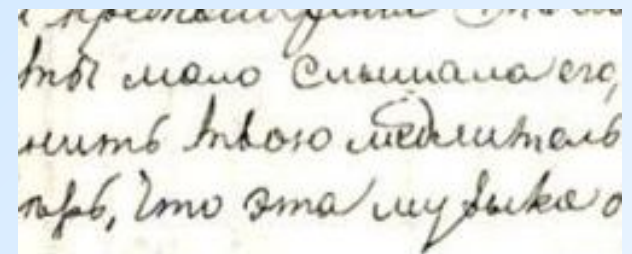 ты мало слышала его,
нить твою медлитель
верь, что эта музыка о